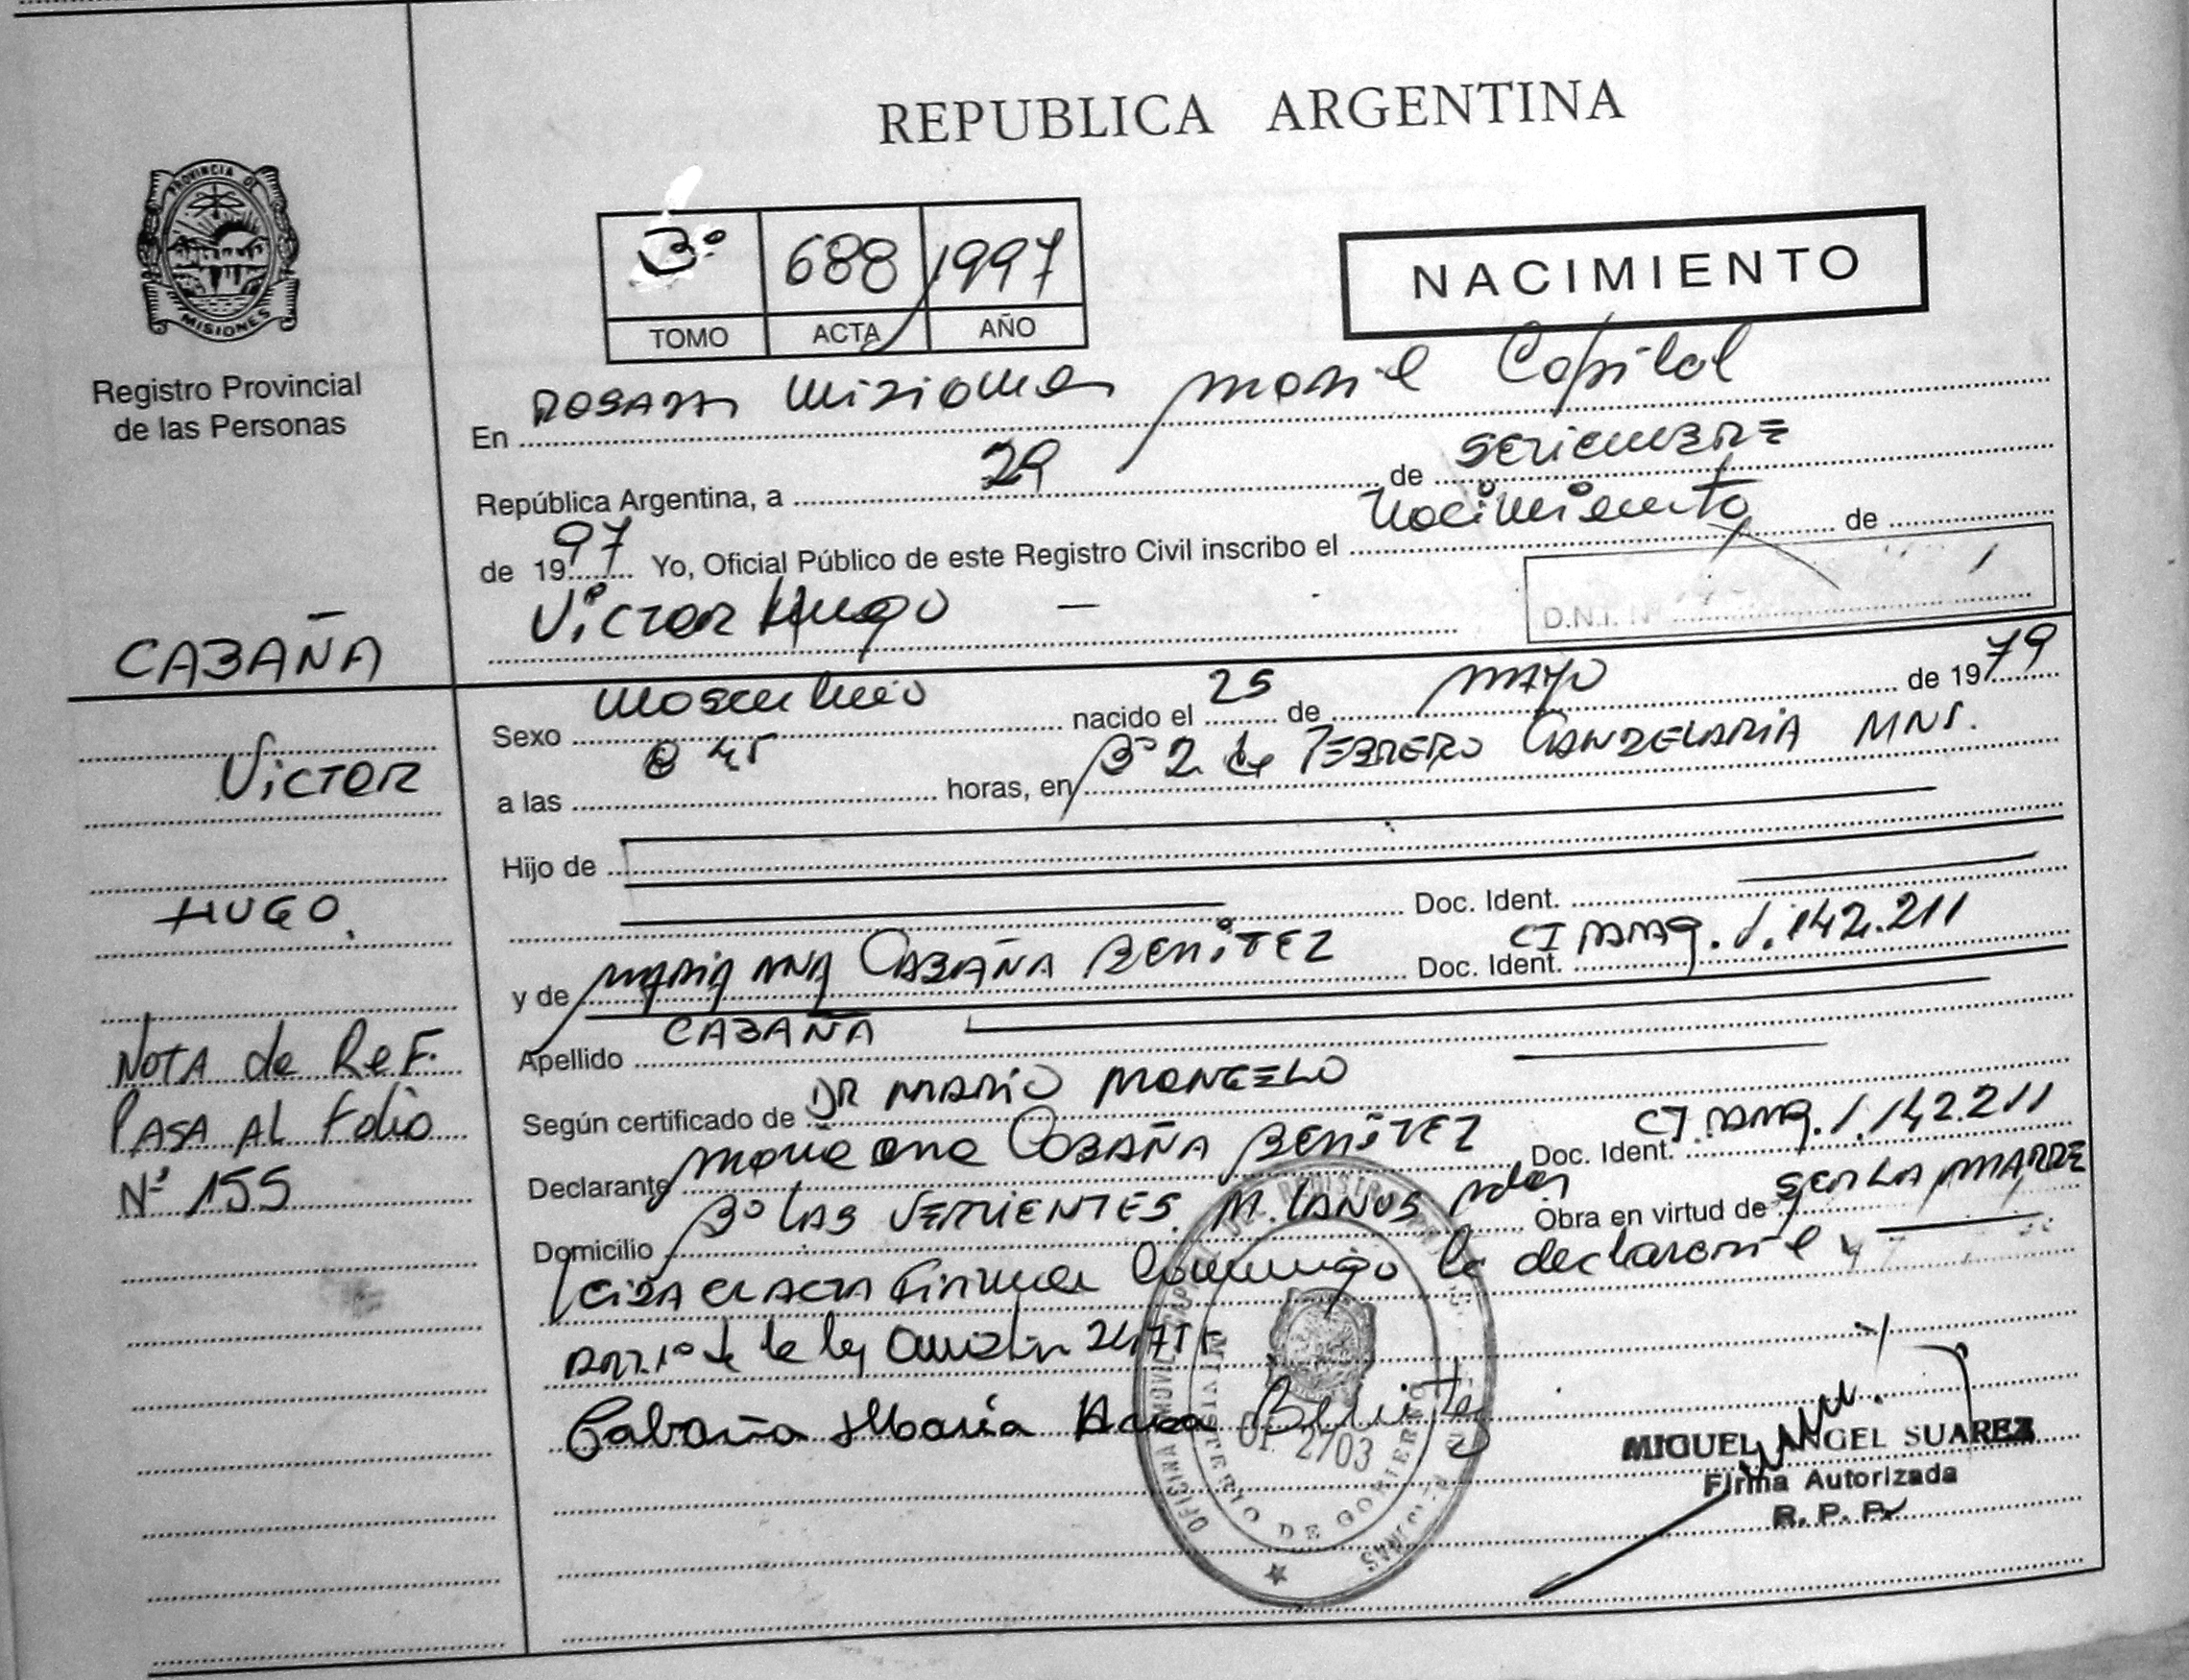 REPUBLICA ARGENTINA
PROVINCIA DE
MISIONES
Registro Provincial
de las Personas
3º 688 1997
TOMO ACTA AÑO
NACIMIENTO
En Misiones Capital
República Argentina, a 29 de
de 1997 Yo, Oficial Público de este Registro Civil inscribo el Nacimiento de
Victor Hugo —
D.N.I. N
CABAÑA
VICTOR
HUGO.
NOTA de ReF.
PASA AL Folio
Nº 155
Sexo Masculino nacido el 25 de MAYO de 1979
a las horas, en Bº 2 de FEBRERO CANDELARIA MNS.
Hijo de
Doc. Ident.
y de MARIA ANA CABAÑA BENITEZ Doc. Ident. CI 1.142.211
Apellido CABAÑA
Según certificado de DR MARIO
Declarante Maria Ana CABAÑA BENITEZ Doc. Ident. CI 1.142.211
Domicilio Bº LAS VERTIENTES Obra en virtud de SER LA MADRE
Leida el ACTA Firma Conmigo la declarante
Cabaña Maria Ana Benitez
OFICINA MOVIL
MINISTERIO DE GOBIERNO
2703
MIGUEL ANGEL SUAREZ
Firma Autorizada
R. P. P.